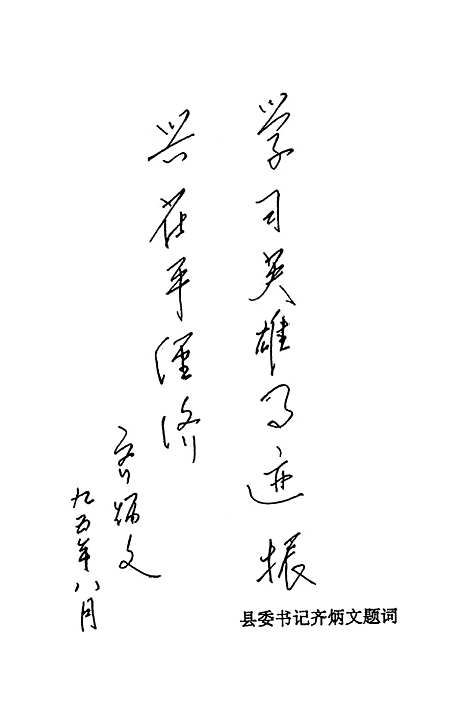 学习英雄事迹振
兴茌平经济
齐炳文
九五年八月
县委书记齐炳文题词